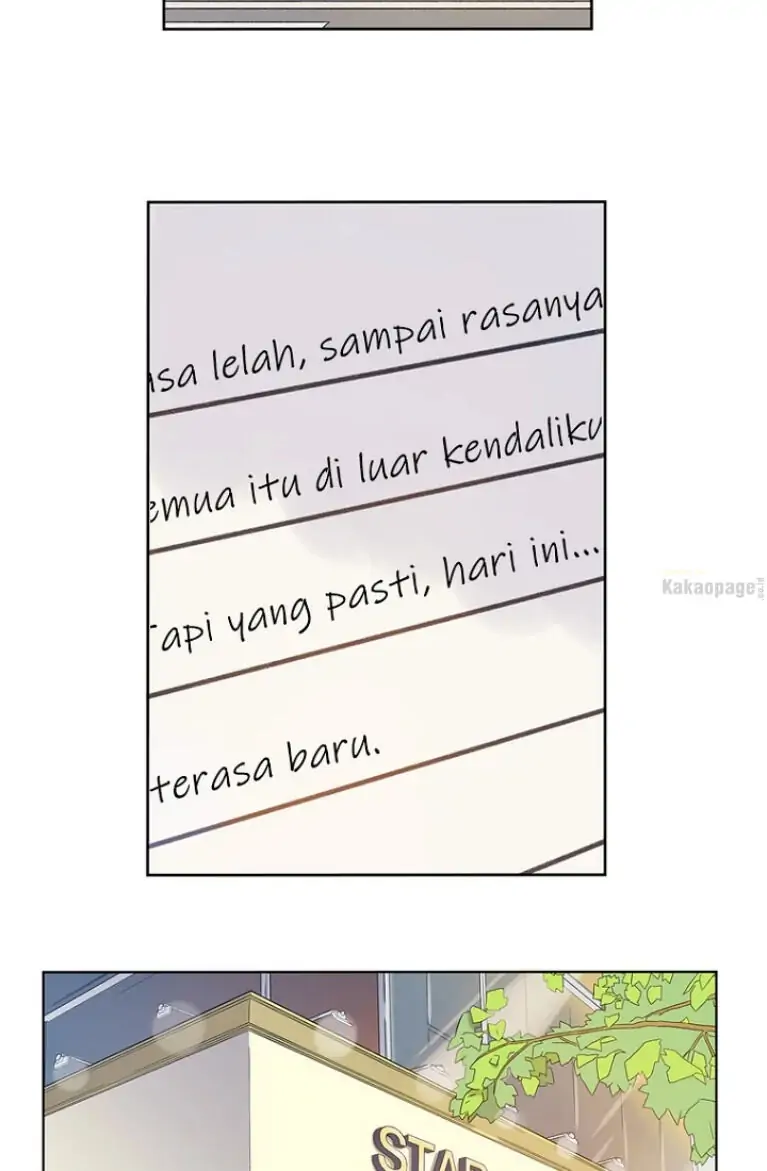 asa lelah, sampai rasanya
emua itu di luar kendaliku
Tapi yang pasti, hari ini...
terasa baru.
Kakaopage.co.id
STAR